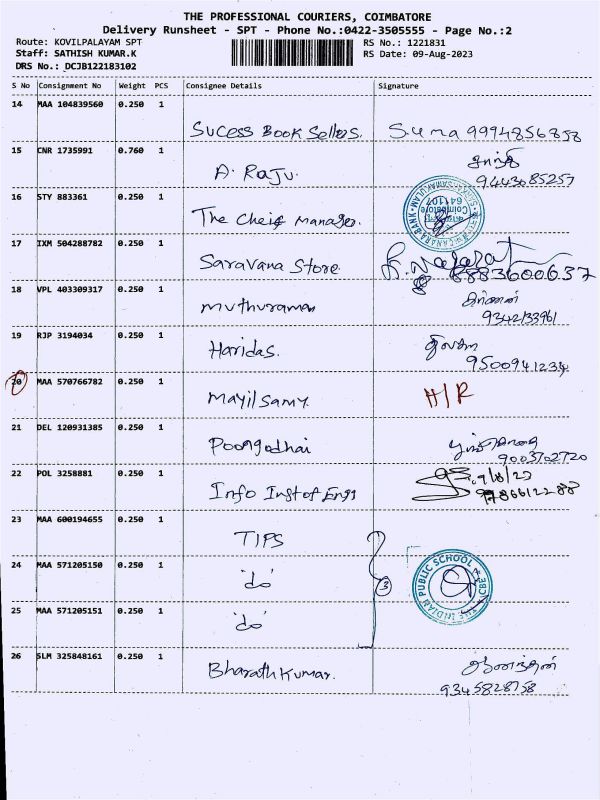 THE PROFESSIONAL COURIERS, COIMBATORE
Delivery Runsheet - SPT - Phone No.:0422-3505555 - Page No.:2
Route: KOVILPALAYAM SPT RS No.: 1221831
Staff: SATHISH KUMAR.K RS Date: 09-Aug-2023
DRS No.: DCJB122183102
S No Consignment No Weight PCS Consignee Details Signature
14 MAA 104839560 0.250 1
Sucess Book Sellers. Suma 9994856858
15 CNR 1735991 0.760 1
A. Raju. 9443085257
16 STY 883361 0.250 1
The Cheif Manager. CANARA BANK Coimbatore 641107
17 IXM 504288782 0.250 1
Saravana Store 6883600637
18 VPL 403309317 0.250 1
muthuraman
9342133961
19 RJP 3194034 0.250 1
Haridas.
9500941234
20 MAA 570766782 0.250 1
Mayilsamy. H/R
21 DEL 120931385 0.250 1
Poongodhai 9003702720
22 POL 3258881 0.250 1
Info Inst of Engg
23 MAA 600194655 0.250 1
TIPS
24 MAA 571205150 0.250 1
"do" 3 THE INDIAN PUBLIC SCHOOL CBE
25 MAA 571205151 0.250 1
"do"
26 SLM 325848161 0.250 1
Bharath Kumar.
9345828758